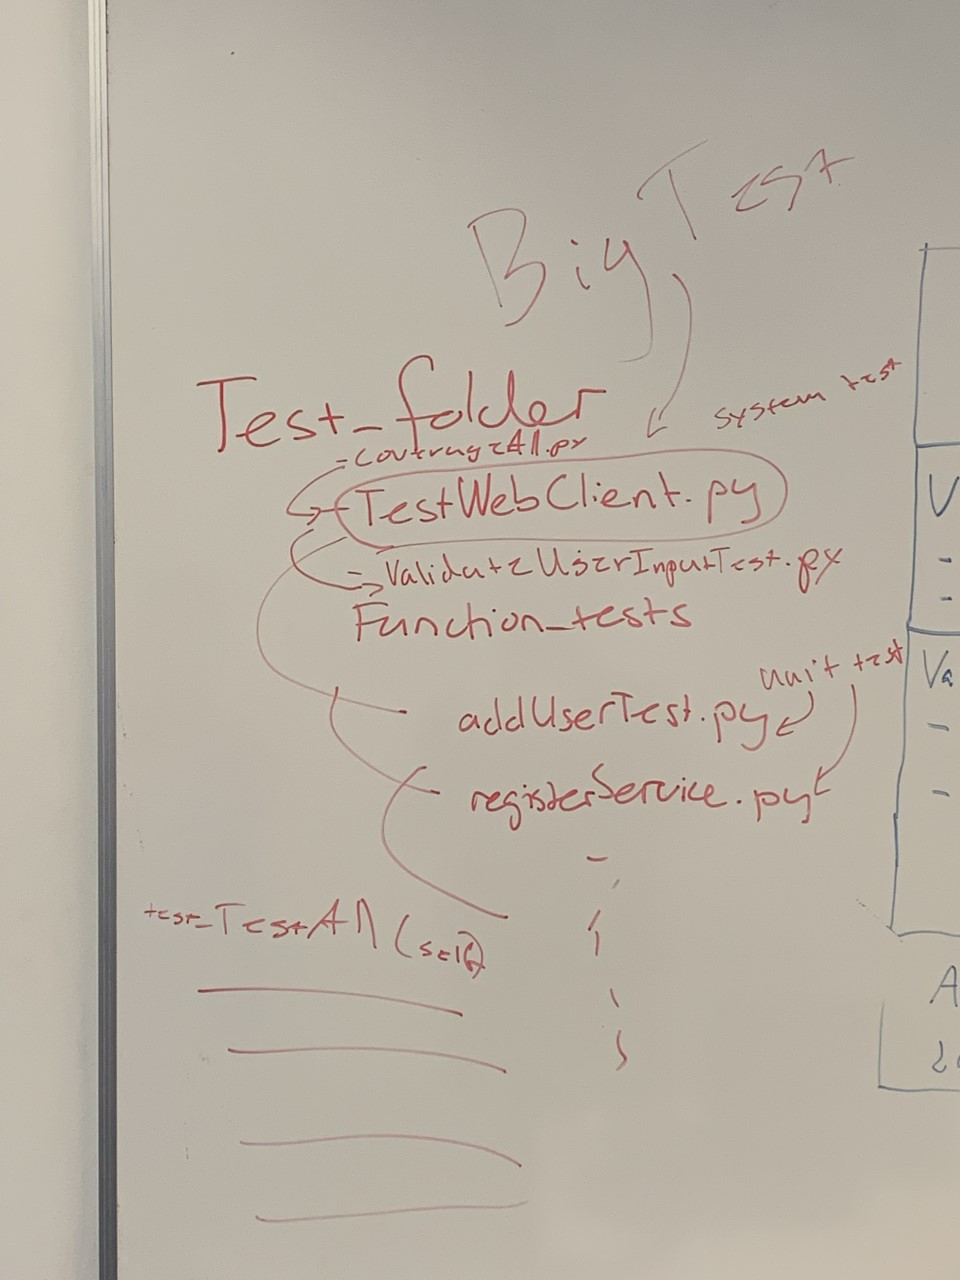 Big Test
system test
Test_folder
- CoverageAll.py
- TestWebClient.py
- ValidateUserInputTest.py
Function_tests
unit test
addUserTest.py
registerService.py
test_TestAll(self)
V
-
-
Va
-
-
A